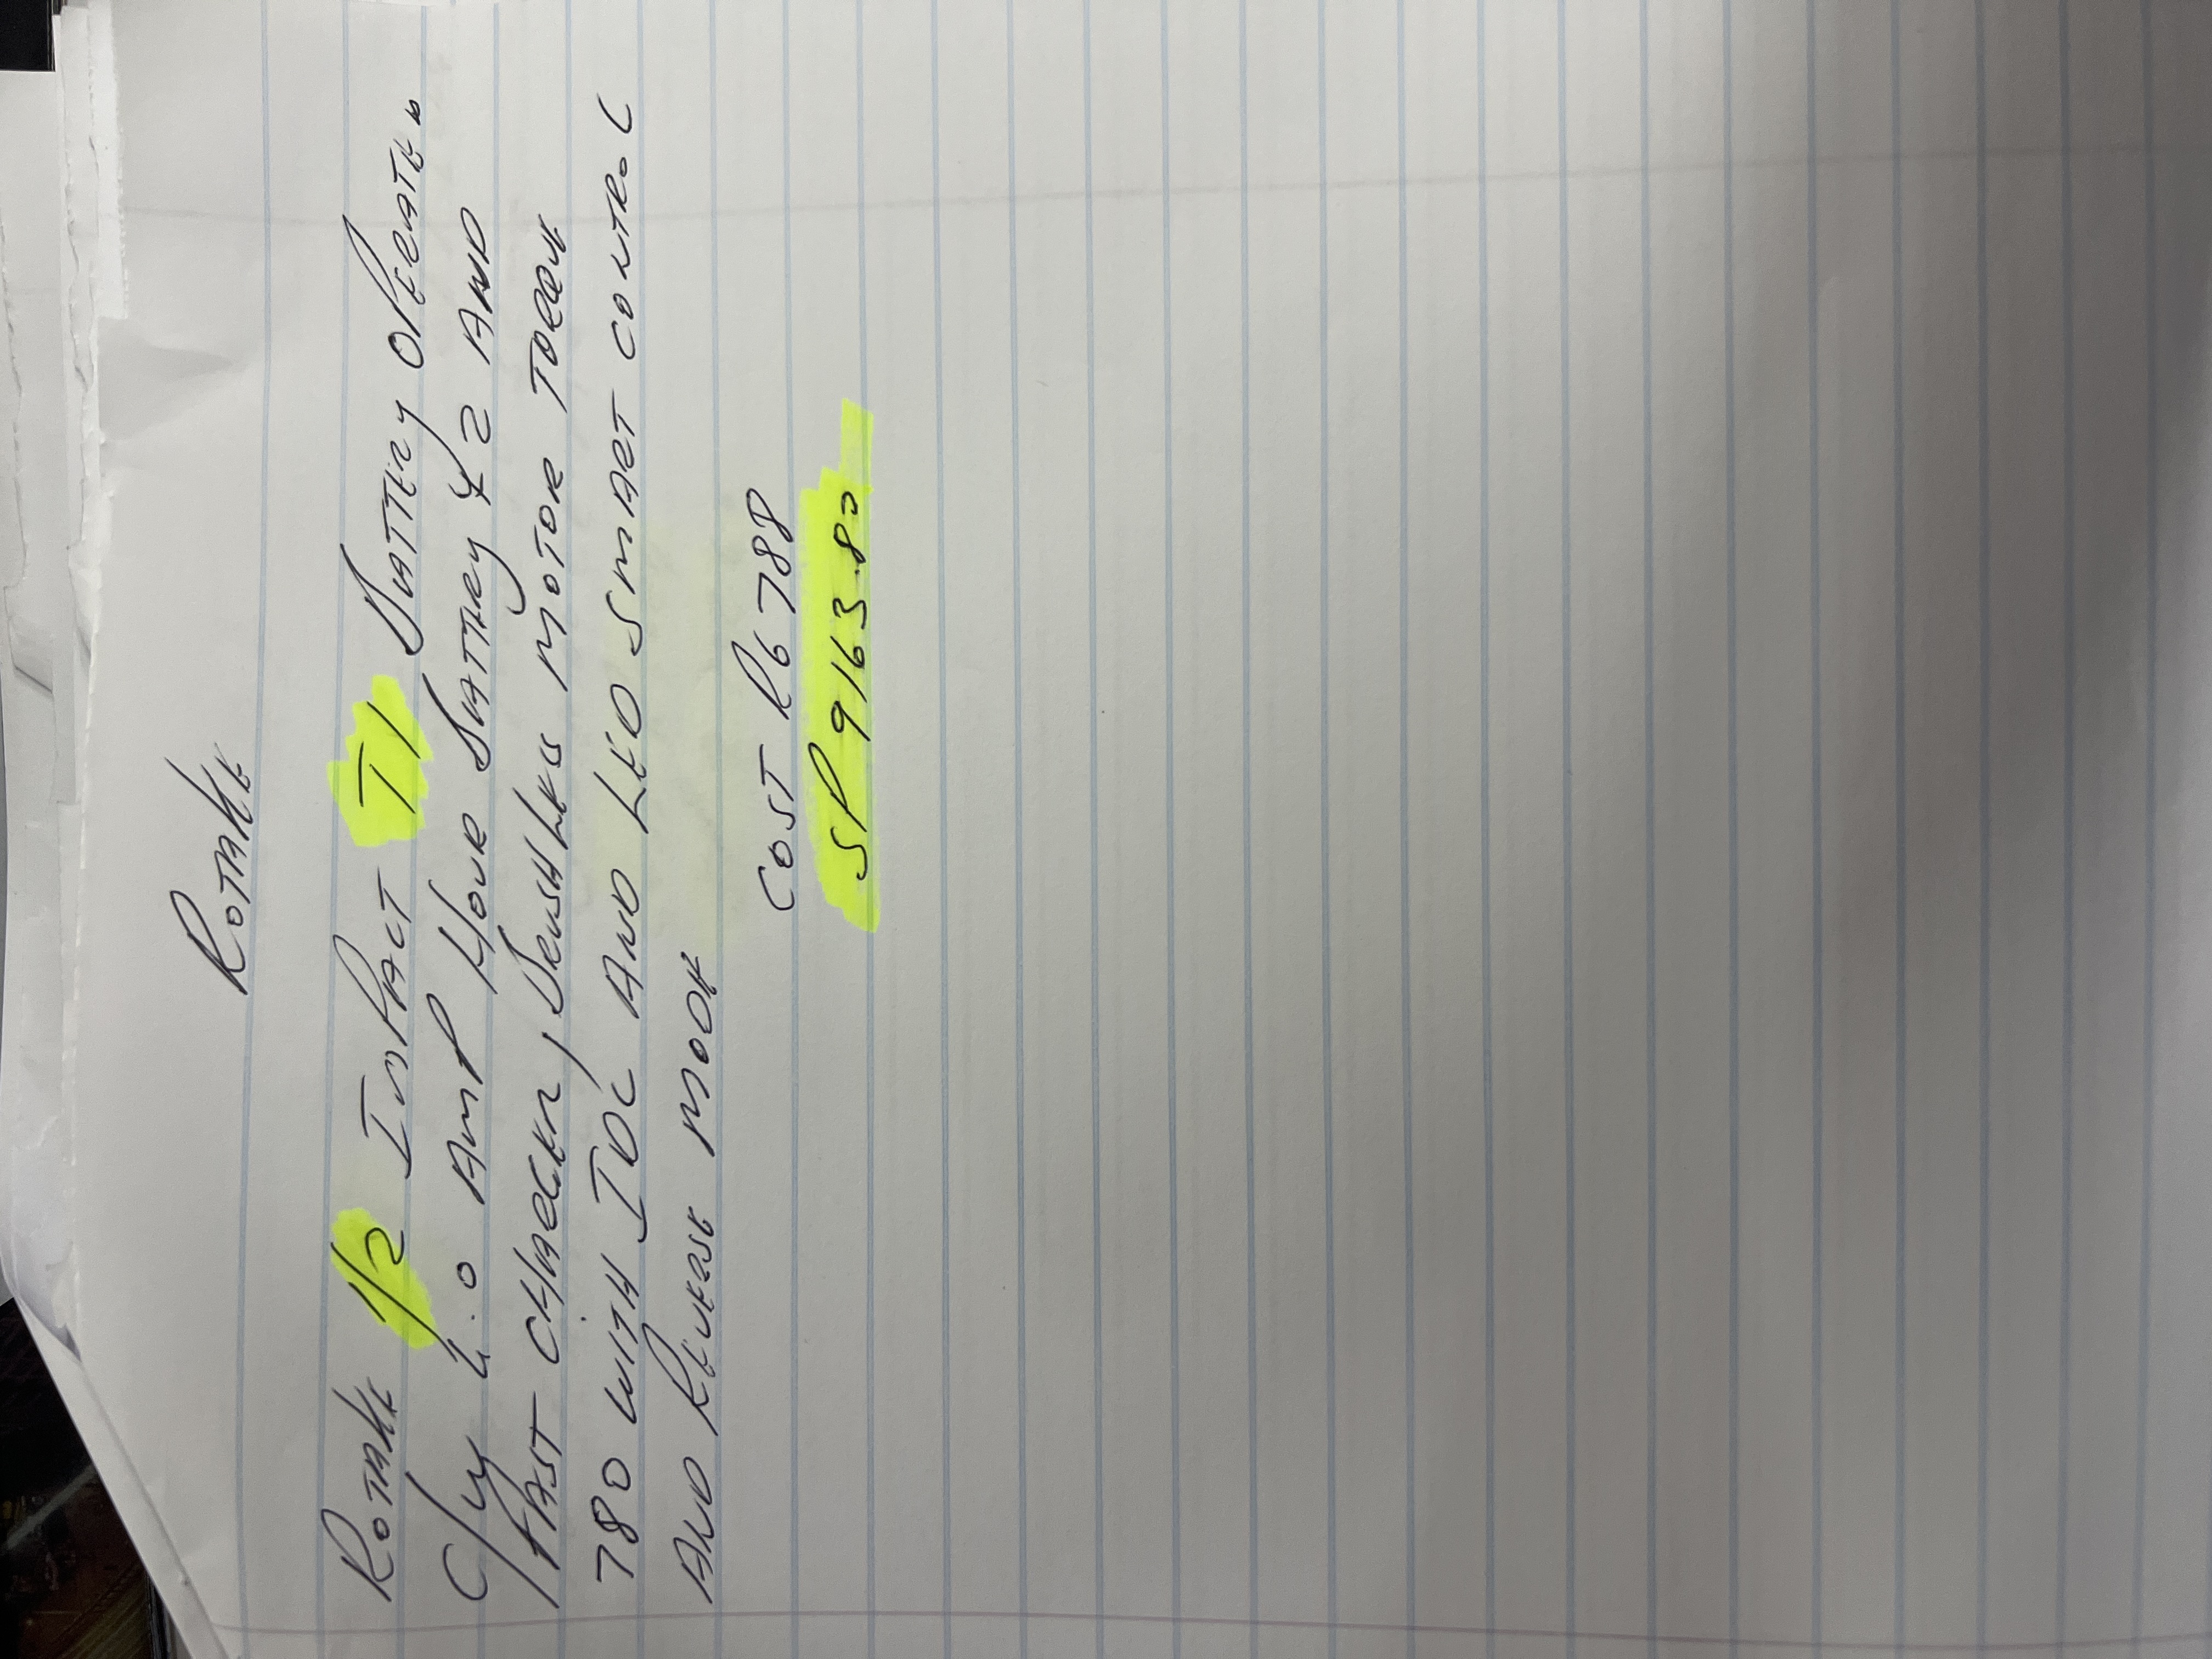 ROTAKE
ROTAKE 1/2 IMPACT T1 BATTERY OPERATED
C/W 4.0 AMP HOUR BATTERY X2 AND
FAST CHARGER, BRUSHLESS MOTOR TORQUE
780 WITH IDC AND LED SMART CONTROL
AND REVERSE MODE
COST R6788
SP 9163.80